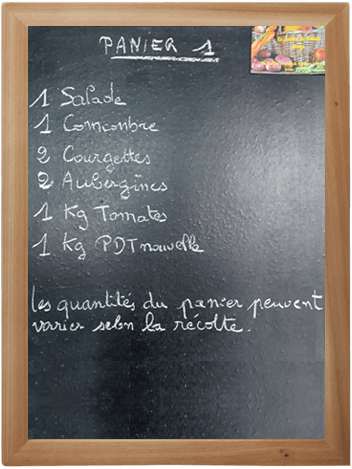 PANIER 1
1 Salade
1 Concombre
2 Courgettes
2 Aubergines
1 Kg Tomates
1 Kg PDT nouvelle
les quantités du panier peuvent
varier selon la récolte.